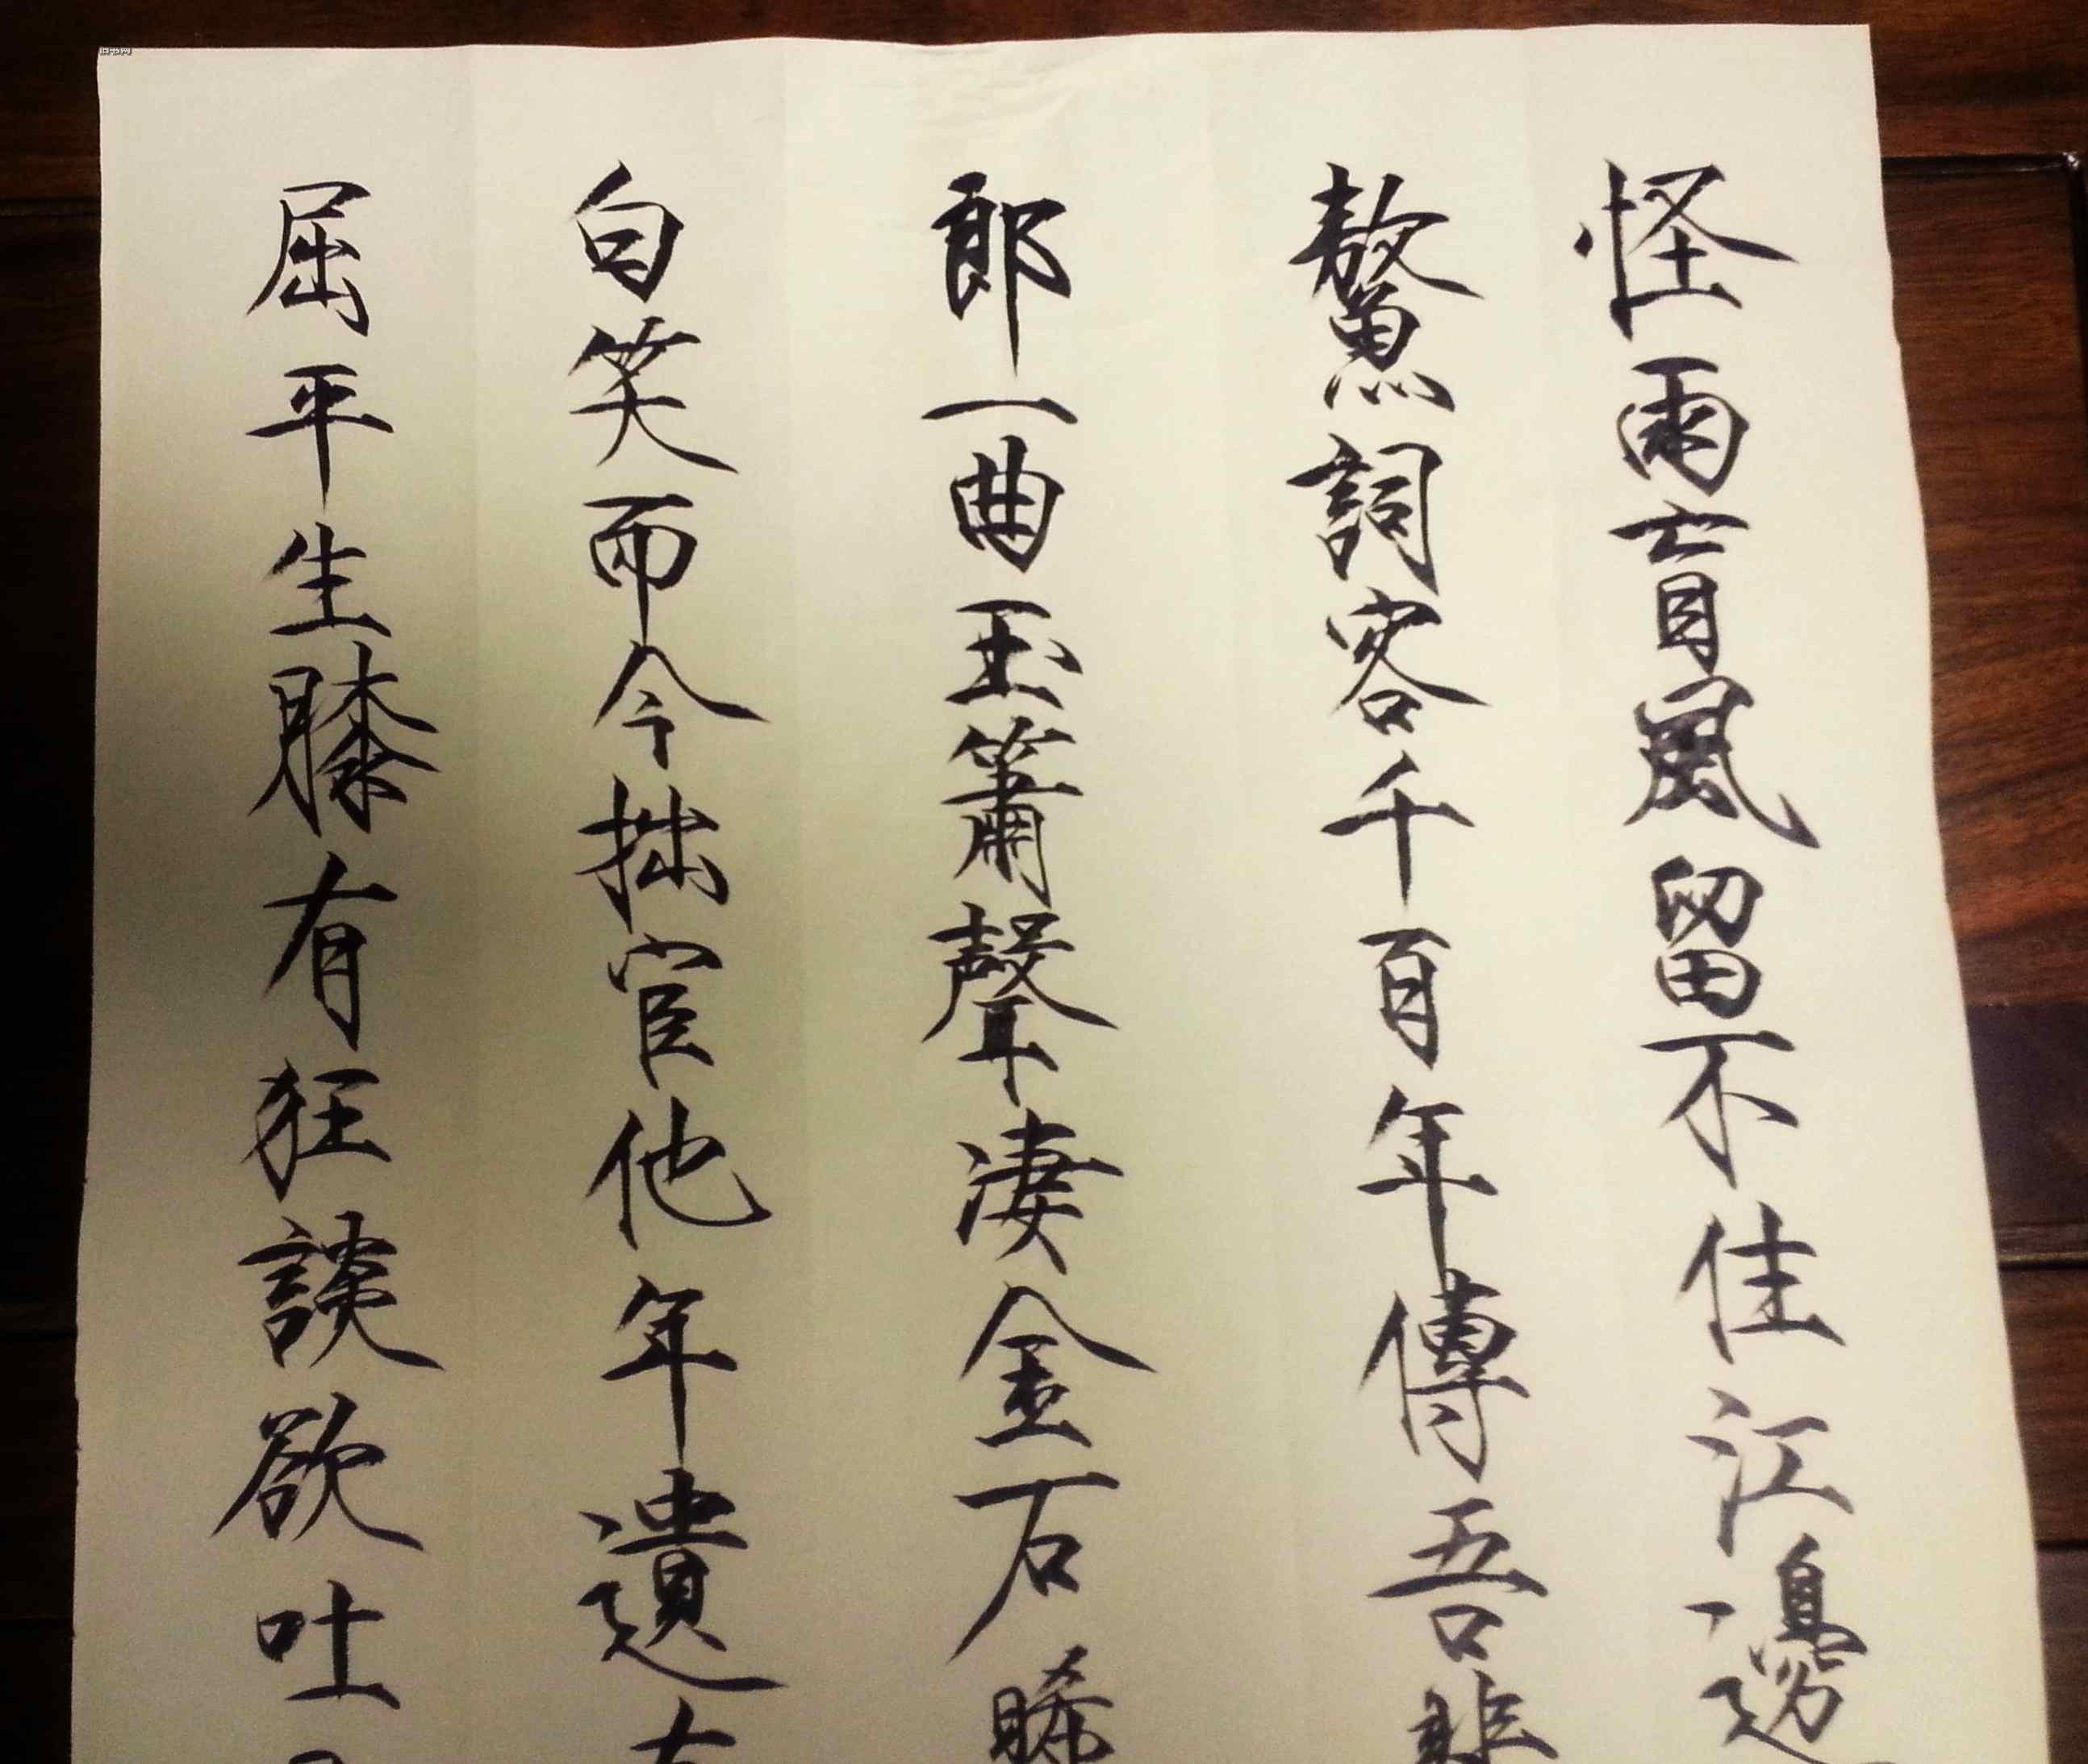 怪雨盲風留不住江邊
鰲詞客千百年傳吾非
郎一曲玉簫聲淒金石晞
白笑而今拙宦他年遺
屈平生膝有狂談欲吐